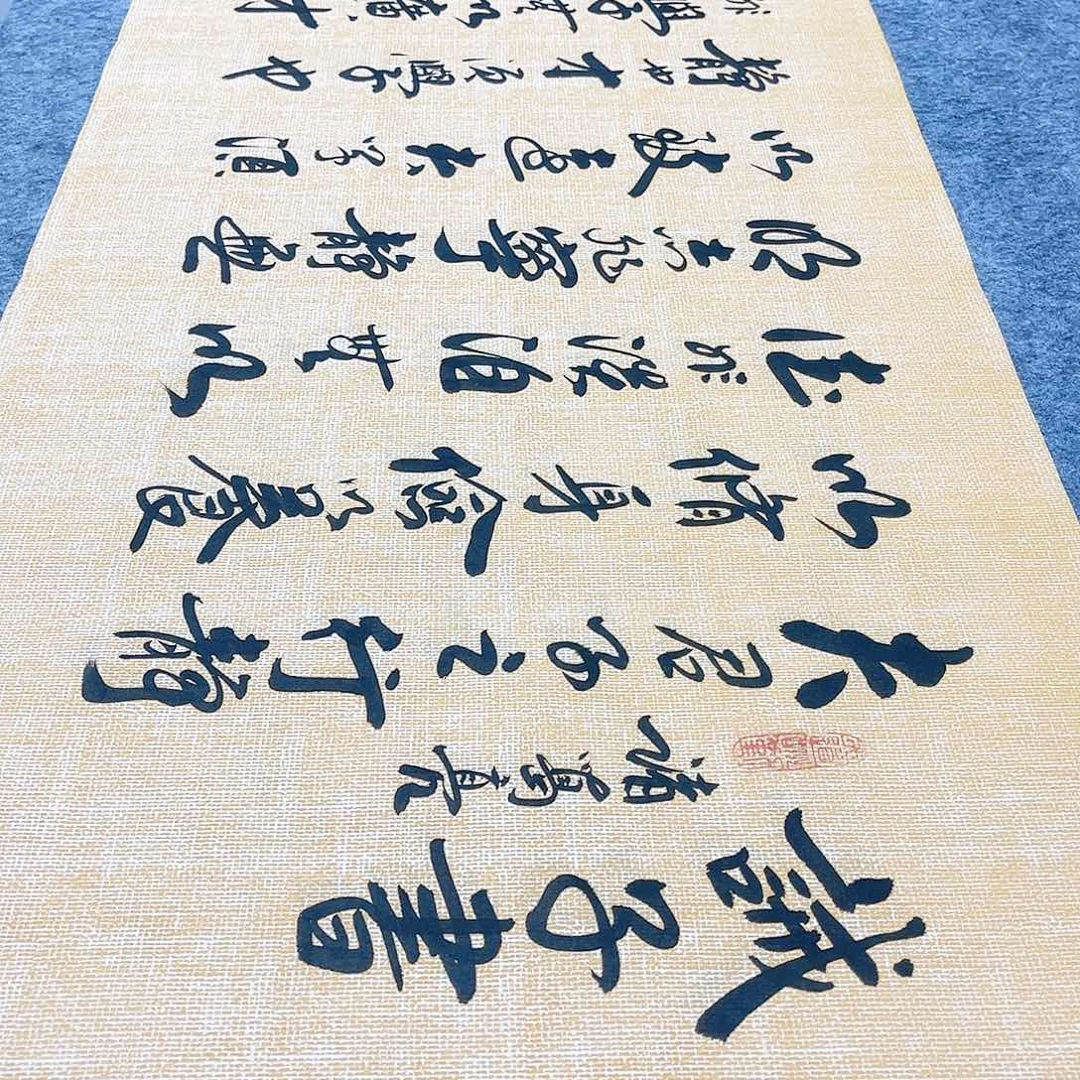 誡子書
諸葛亮
夫君子之行靜
以脩身儉以養
德非澹泊無以
明志非寧靜無
以致遠夫学須
靜也才須學也
非學無以廣才